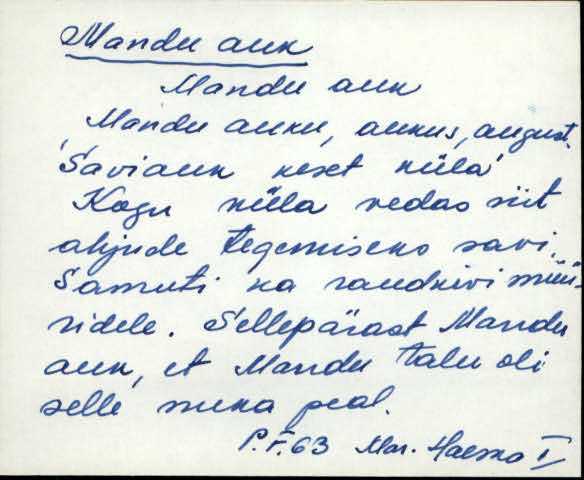 Mandu auk
Mandu auk
Mandu auku, aukus, august.
Saviauk keset küla
Kogu küla vedas siit
ahjude tegemiseks savi.
Samuti ka raudkivi müü-
ridele. Sellepärast Mandu
auk, et Mandu talu oli
selle muka peal.
P.F. 63 Mar. Haesko I